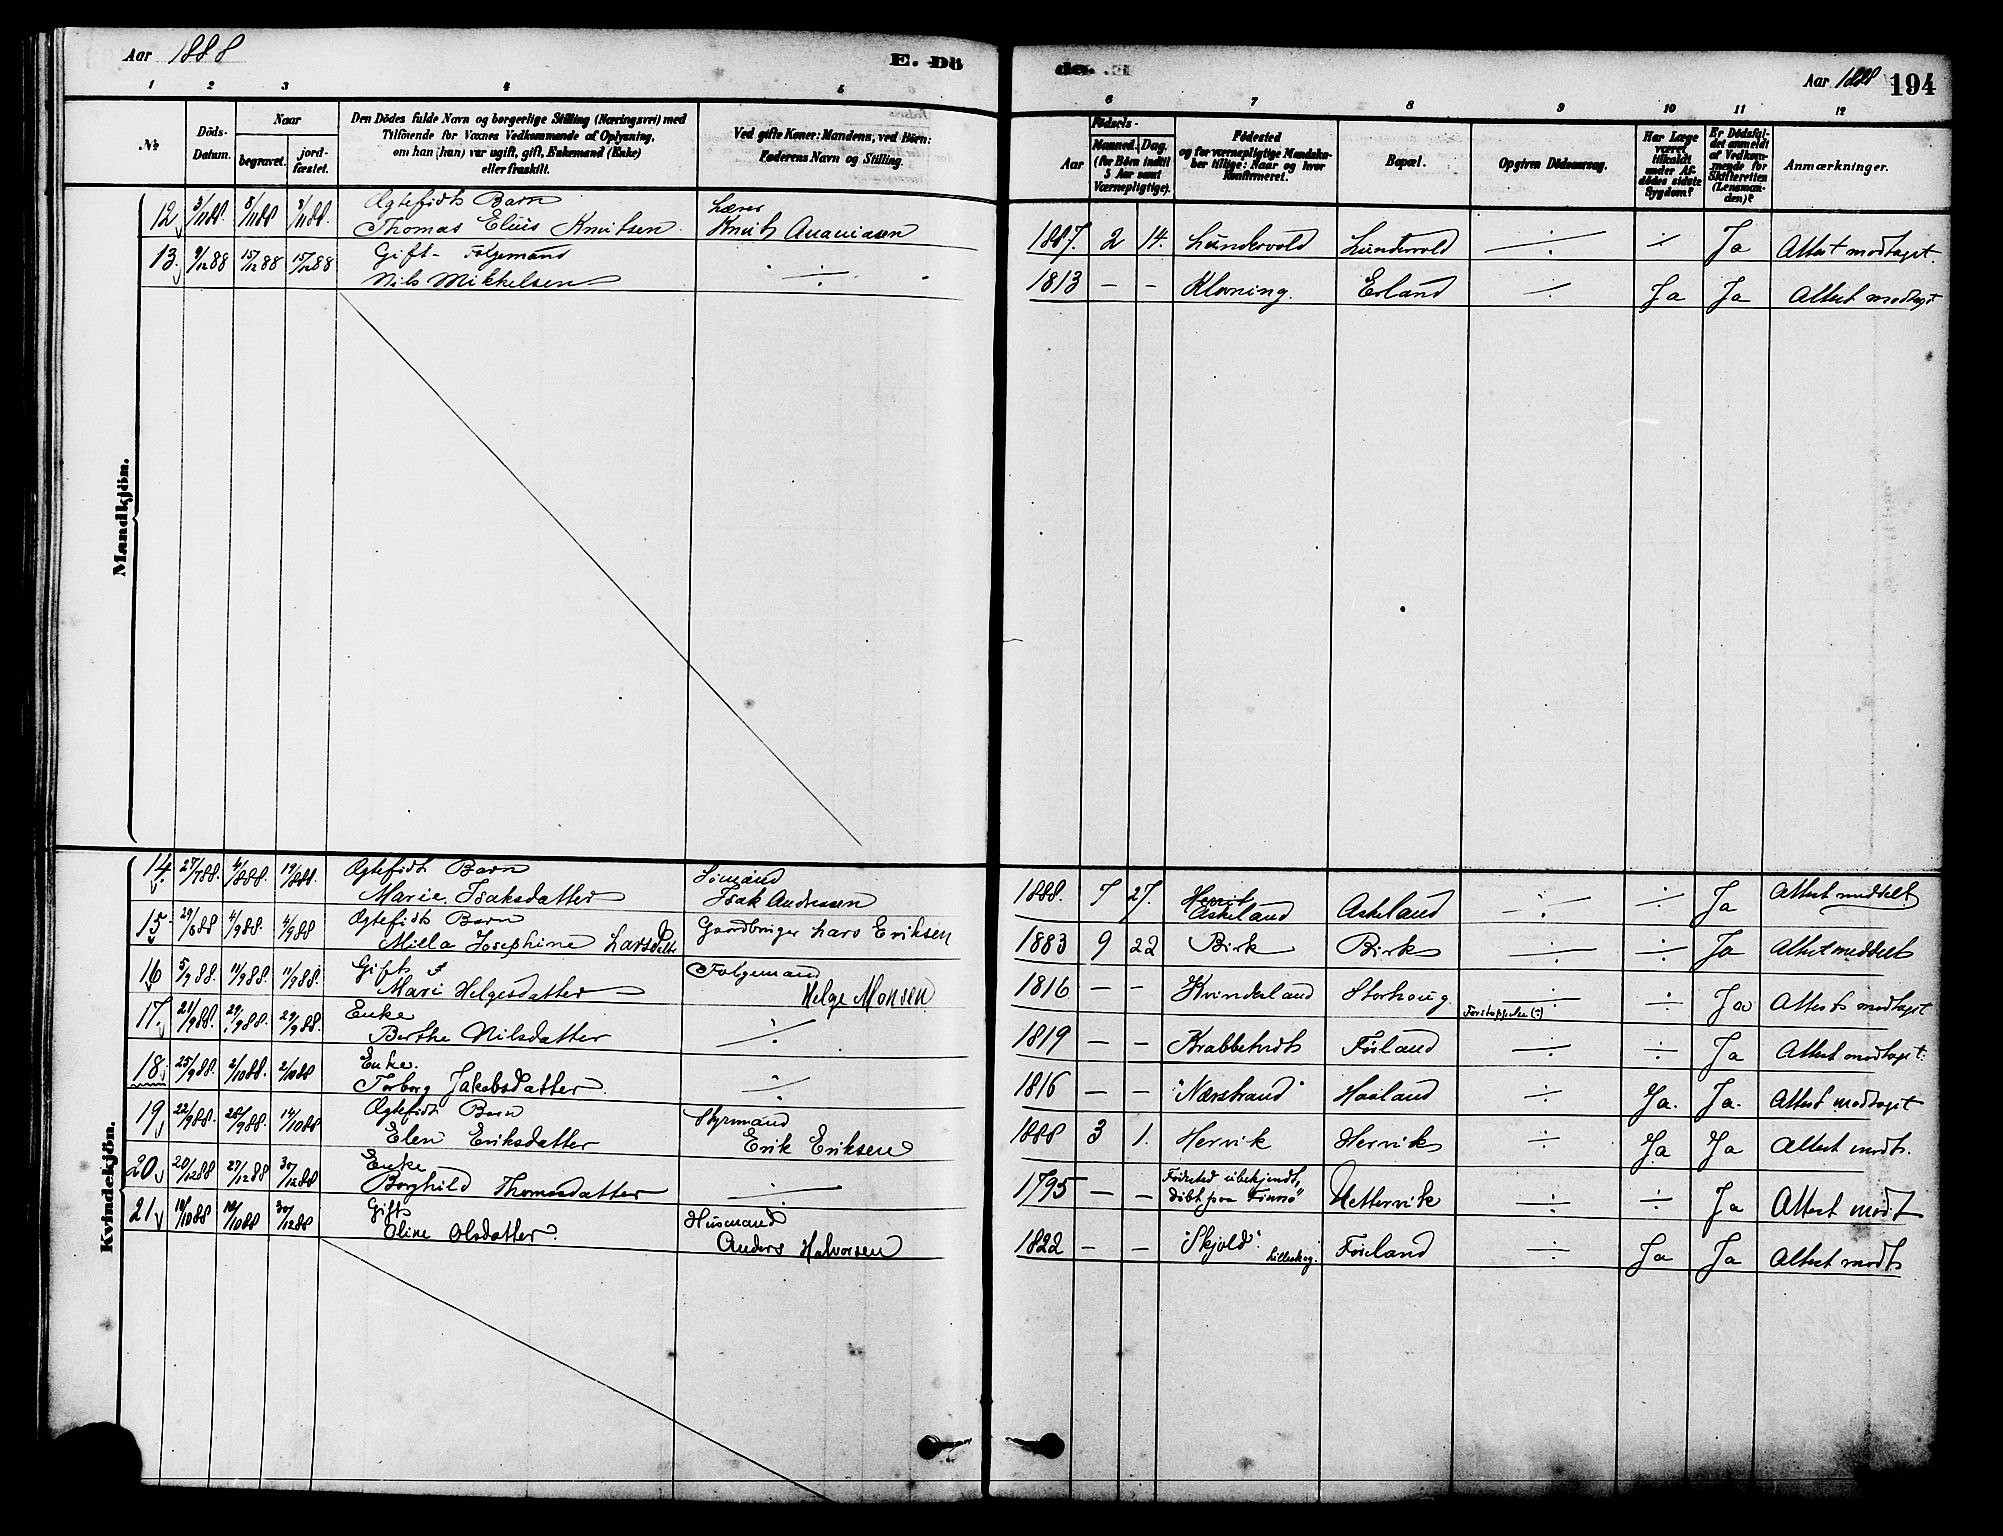 Aar 1888
E. Dö
de. E
Aar 1888
194
1 2 3 4 5
6 7 8 9 10 11 12
№
Döds-
Datum.
Naar
begravet.
jord-
fæstet.
Den Dödes fulde Navn og borgerlige Stilling (Næringsvei) med
Tilföiende for Voxnes Vedkommende af Oplysning,
om han (hun) var ugift, gift, Enkemand (Enke)
eller fraskilt.
Ved gifte Koner: Mandens, ved Börn:
Faderens Navn og Stilling.
Födsels-
Aar
Maaned. Dag.
(for Börn indtil
5 Aar samt
Værnepligtige).
Födested
og for værnepligtige Mandskaber
tillige: Naar og hvor
Konfirmeret.
Bopæl.
Opgiven Dödsaarsag.
Har Læge
været
tilkaldt
under Afdödes
sidste
Sygdom?
Er Dödsfaldet
anmeldt
af Vedkommende
for
Skifteretten
(Lensmanden)?
Anmærkninger.
Mandkjön.
12 3/11 88. 8/11 88 8/11 88. Ægtefødt Barn Lærer
Thomas Elius Knutsen. Knut Ananiasen 1887. 2 14. Lundervold Lundervold ÷ ÷ Ja Attest modtaget.
13. 9/12 88 15/12 88 15/12 88 Gift - Folgemand
Nils Mikkelsen ÷ 1813 — — Kloning. Erland ÷ Ja Ja Attest modtaget
Kvindekjön.
14. 27/7 88. 4/8 88. 19/8 88. Ægtefødt Barn Sømand
Marie Isaksdatter Isak Andreasen 1888. 7 27. Askeland Askeland ÷ ÷ Ja Attest meddelt.
15. 29/8 88 4/9 88. 4/9 88 Ægtefødt Barn
Milla Josephine Larsdatt Gaardbruger Lars Eriksen 1883 9 22 Birk Birk ÷ ÷ Ja Attest meddelt
16 5/9 88. 11/9 88. 11/9 88. Gift Folgemand
Mari Helgesdatter Helge Monsen 1816 — — Kvinderland Storhoug. ÷ ÷ Ja Attest modtaget
17. 21/9 88. 29/9 88. 29/9 88. Enke Forstoppelse (÷)
Berthe Nilsdatter ÷ 1819 — — Krabbetvedt Føiland ÷ ÷ Ja Attest modtaget.
18 25/9 88 2/10 88. 2/10 88 Enke.
Torborg Jakobsdatter. ÷ 1816 — — "Nærstrand" Haaland ÷ Ja. Ja. Attest modtaget
19 22/9 88. 28/9 88. 14/10 88 Ægtefødt Barn Styrmand
Elen Eriksdatter Erik Eriksen 1888 3 1. Hervik Hervik ÷ Ja Ja Attest modt.
20 20/12 88 27/12 88 30/12 88 Enke
Borghild Thomasdatter ÷ 1795 — — Fødested ubekjendt,
döbt paa "Finnö" Hettervik ÷ ÷ Ja Attest modt
21 10/10 88 18/10 88 30/12 88 Gift Husmand
Oline Olsdatter. Anders Halvorsen 1822 — — "Skjold". Lilleskog. Føiland ÷ Ja Ja Attest modt